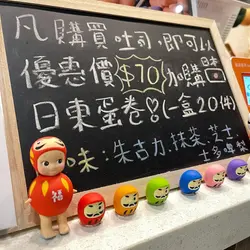 凡購買吐司,即可以
優惠價$70加購
日東蛋卷(一盒20件)
味:朱古力.抹茶.芝士.
士多啤梨
福